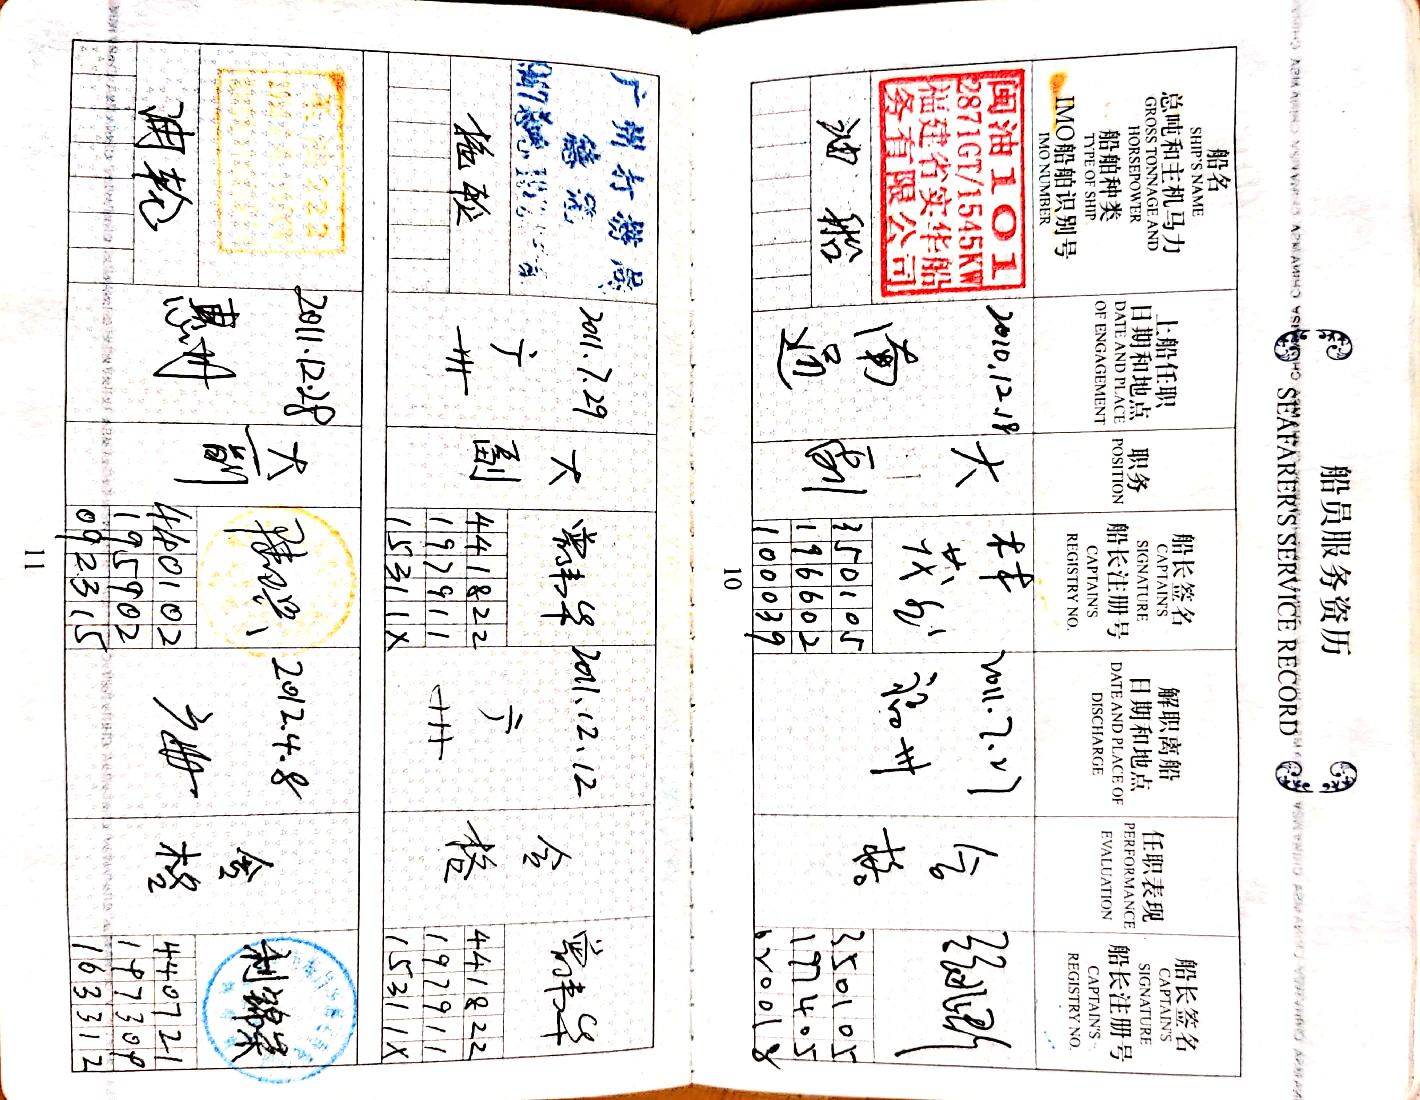 船员服务资历
SEAFARER'S SERVICE RECORD
船名
SHIP'S NAME
总吨和主机马力
GROSS TONNAGE AND
HORSEPOWER
船舶种类
TYPE OF SHIP
IMO船舶识别号
IMO NUMBER
上船任职
日期和地点
DATE AND PLACE
OF ENGAGEMENT
职务
POSITION
船长签名
CAPTAIN'S
SIGNATURE
船长注册号
CAPTAIN'S
REGISTRY NO.
解职离船
日期和地点
DATE AND PLACE OF
DISCHARGE
任职表现
PERFORMANCE
EVALUATION
船长签名
CAPTAIN'S
SIGNATURE
船长注册号
CAPTAIN'S
REGISTRY NO.
闽油101
2871GT/1545KW
福建省实华船
务有限公司
油船
2010.12.18
南
通
大
副
林
350105
196602
100039
2011.7.21
合
格
350105
197405
10
广州
拖轮
2011.7.29
广
州
大
副
441822
197911
15311X
2011.12.12
广
州
合
格
441822
197911
15311X
222
油轮
2011.12.28
惠州
大
副
440102
195902
092315
2012.4.8
广州
合
格
440721
197309
163312
11